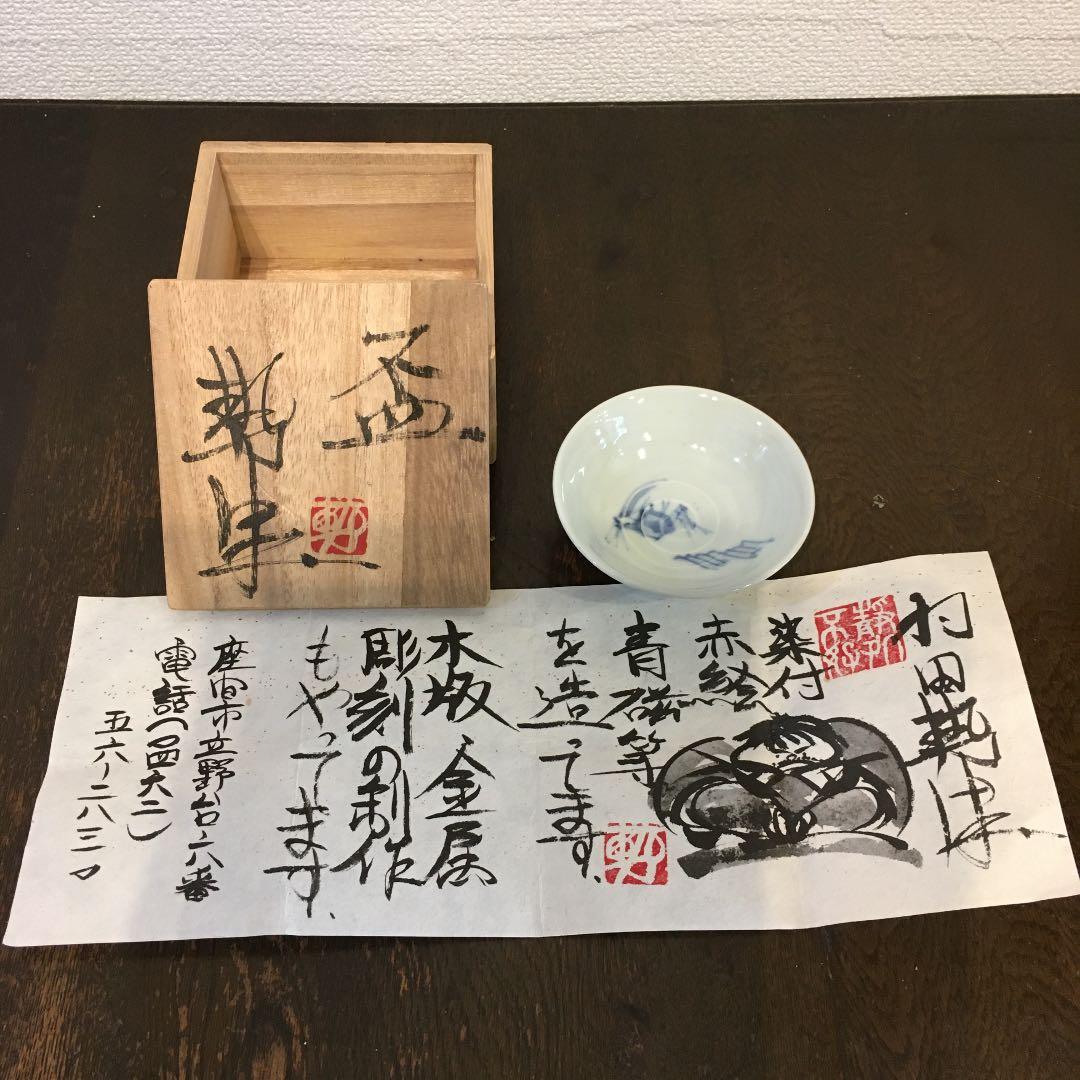 盃
村田
染付
赤繪
青磁等
を造ってます。
木版、金属
彫刻の制作
もやってます。
座間市立野台二ノ八番
電話(〇四六二)
五六ー二八三